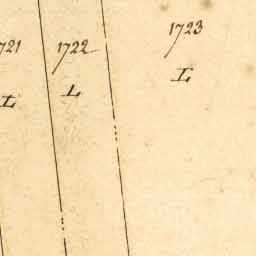 1723
1722
721
L
L
L